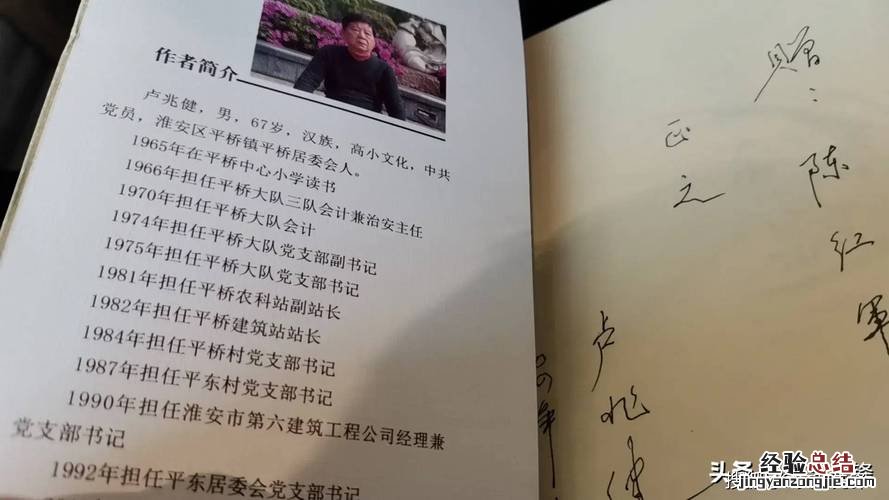 作者简介
卢兆健，男，67岁，汉族，高小文化，中共
党员，淮安区平桥镇平桥居委会人。
1965年在平桥中心小学读书
1966年担任平桥大队三队会计兼治安主任
1970年担任平桥大队会计
1974年担任平桥大队党支部副书记
1975年担任平桥大队党支部书记
1981年担任平桥农科站副站长
1982年担任平桥建筑站站长
1984年担任平桥村党支部书记
1987年担任平东村党支部书记
1990年担任淮安市第六建筑工程公司经理兼
党支部书记
1992年担任平东居委会党支部书记
赠：陈红军
正之
卢兆健
头条
经验总结
jingyanzongjie.com